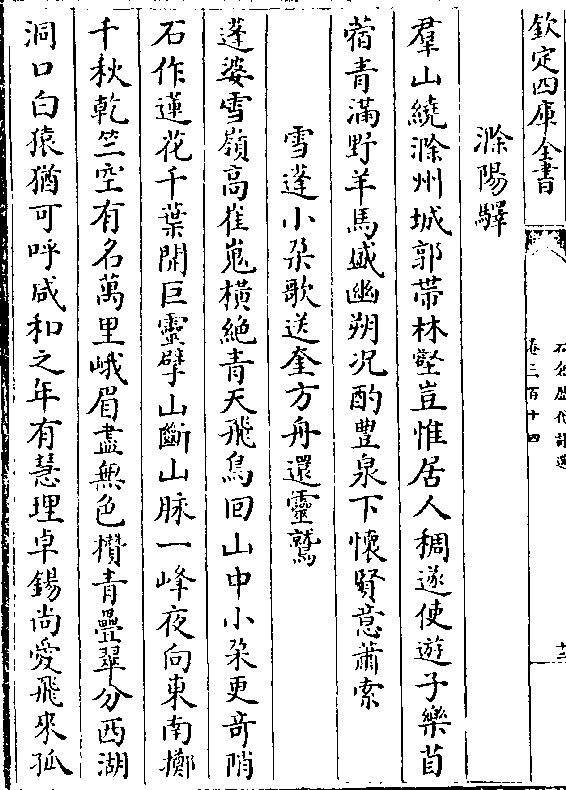 欽定四庫全書
石倉歷代詩選
卷三百十四
十三
滁陽驛
羣山繞滁州城郭帶林壑豈惟居人稠遂使遊子樂苜
蓿青滿野羊馬盛幽朔况酌豊泉下懷賢意蕭索
雪蓬小朶歌送奎方舟還靈鷲
蓬婆雪嶺高崔嵬橫絶青天飛鳥回山中小朶更奇陗
石作蓮花千葉開巨靈擘山斷山脉一峰夜向東南擲
千秋乾竺空有名萬里峨眉盡無色櫕青疊翠分西湖
洞口白猿猶可呼咸和之年有慧理卓錫尚愛飛來孤